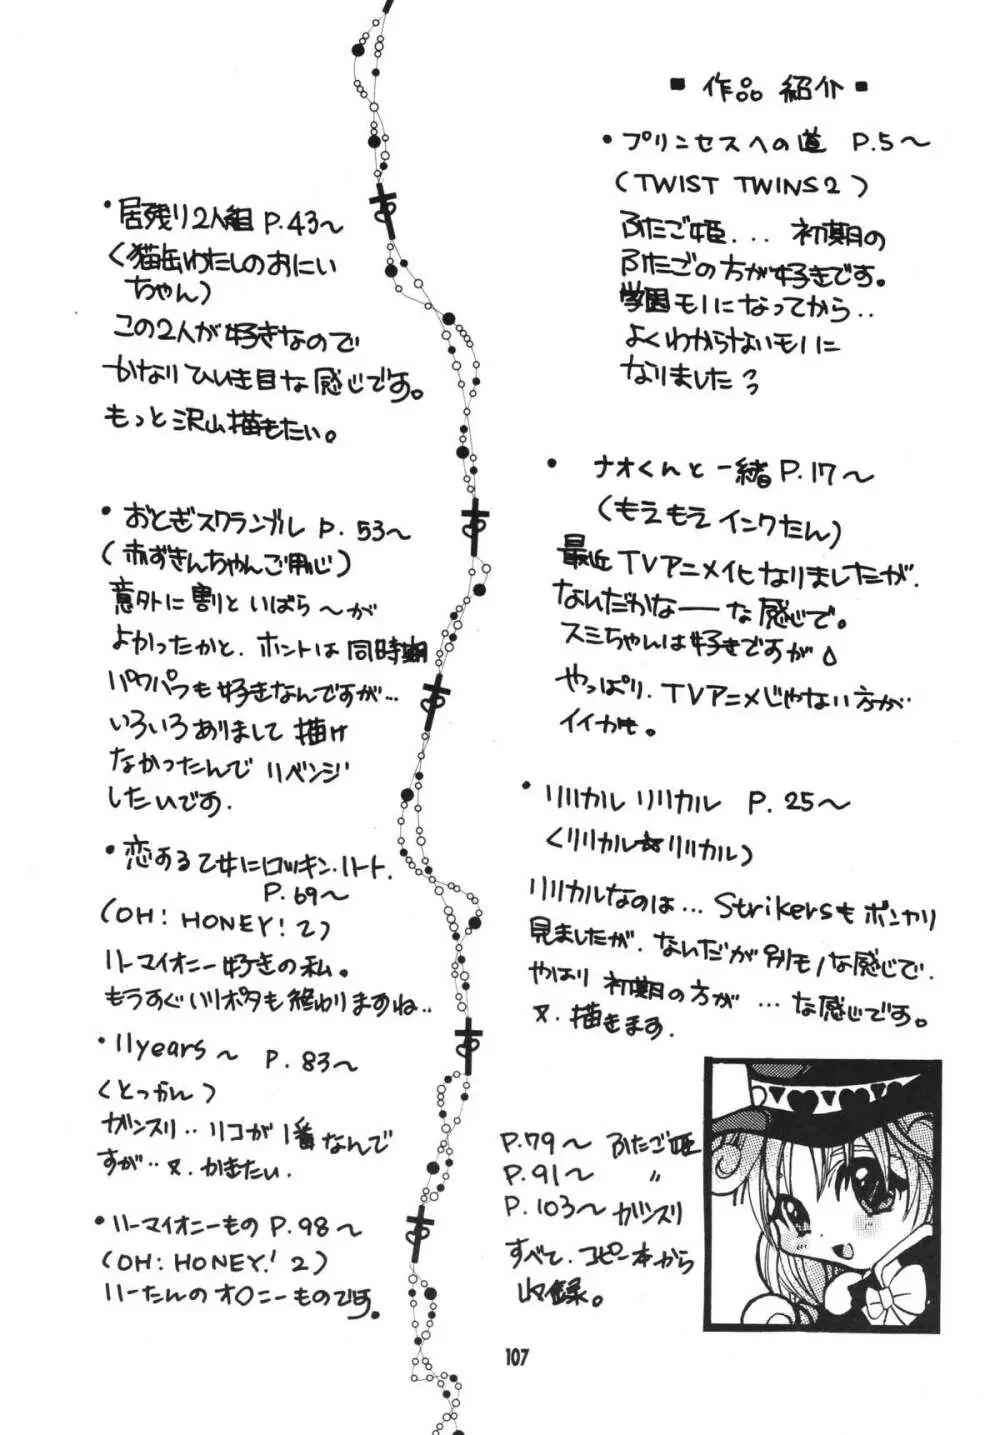 ▪ 作品 紹介 ▪
・プリンセスへの道 P.5〜
(TWIST TWINS 2)
ふたご姫... 初期の
ふたごの方が好きです。
学園モノになってから..
よくわからないモノに
なりました
・ナオくんと一緒 P.17〜
(もえもえインクたん)
最近TVアニメイヒなりましたが、
なんだかなーーな感じで。
スミちゃんは好きですが
やっぱり、TVアニメじゃない方が
イイかも。
・リリカルリリカル P.25〜
(リリカル☆リリカル)
リリカルなのは... Strikersもボンヤリ
見ましたが、なんだか別モノな感じで、
やはり初期の方が ...な感じです。
又、描きます.
P.79〜 ふたご姫
P.91〜 〃
P.103〜 ガンスリ
すべて、コピー本から
収録。
・居残り2人組 P.43〜
(猫缶わたしのおにい
ちゃん)
この2人が好きなので
かなりひいき目な感じです。
もっと沢山描きたい。
・おとぎスクランブル P.53〜
(赤ずきんちゃんご用心)
意外に割といばら〜が
よかったかと、ホントは同時期
パワパフも好きなんですが...
いろいろありまして描け
なかったんでリベンジ
したいです.
・恋する乙女にロッキン・ハート.
P.69〜
(OH! HONEY! 2)
ハーマイオニー好きの私。
もうすぐハリポタも終わりますね..
・11years〜 P.83〜
(とっかん)
ガンスリ..リコが1番なんで
すが..又、かきたい.
・ハーマイオニーもの P.98〜
(OH! HONEY! 2)
ハーたんのオ〇ニーものです。
107